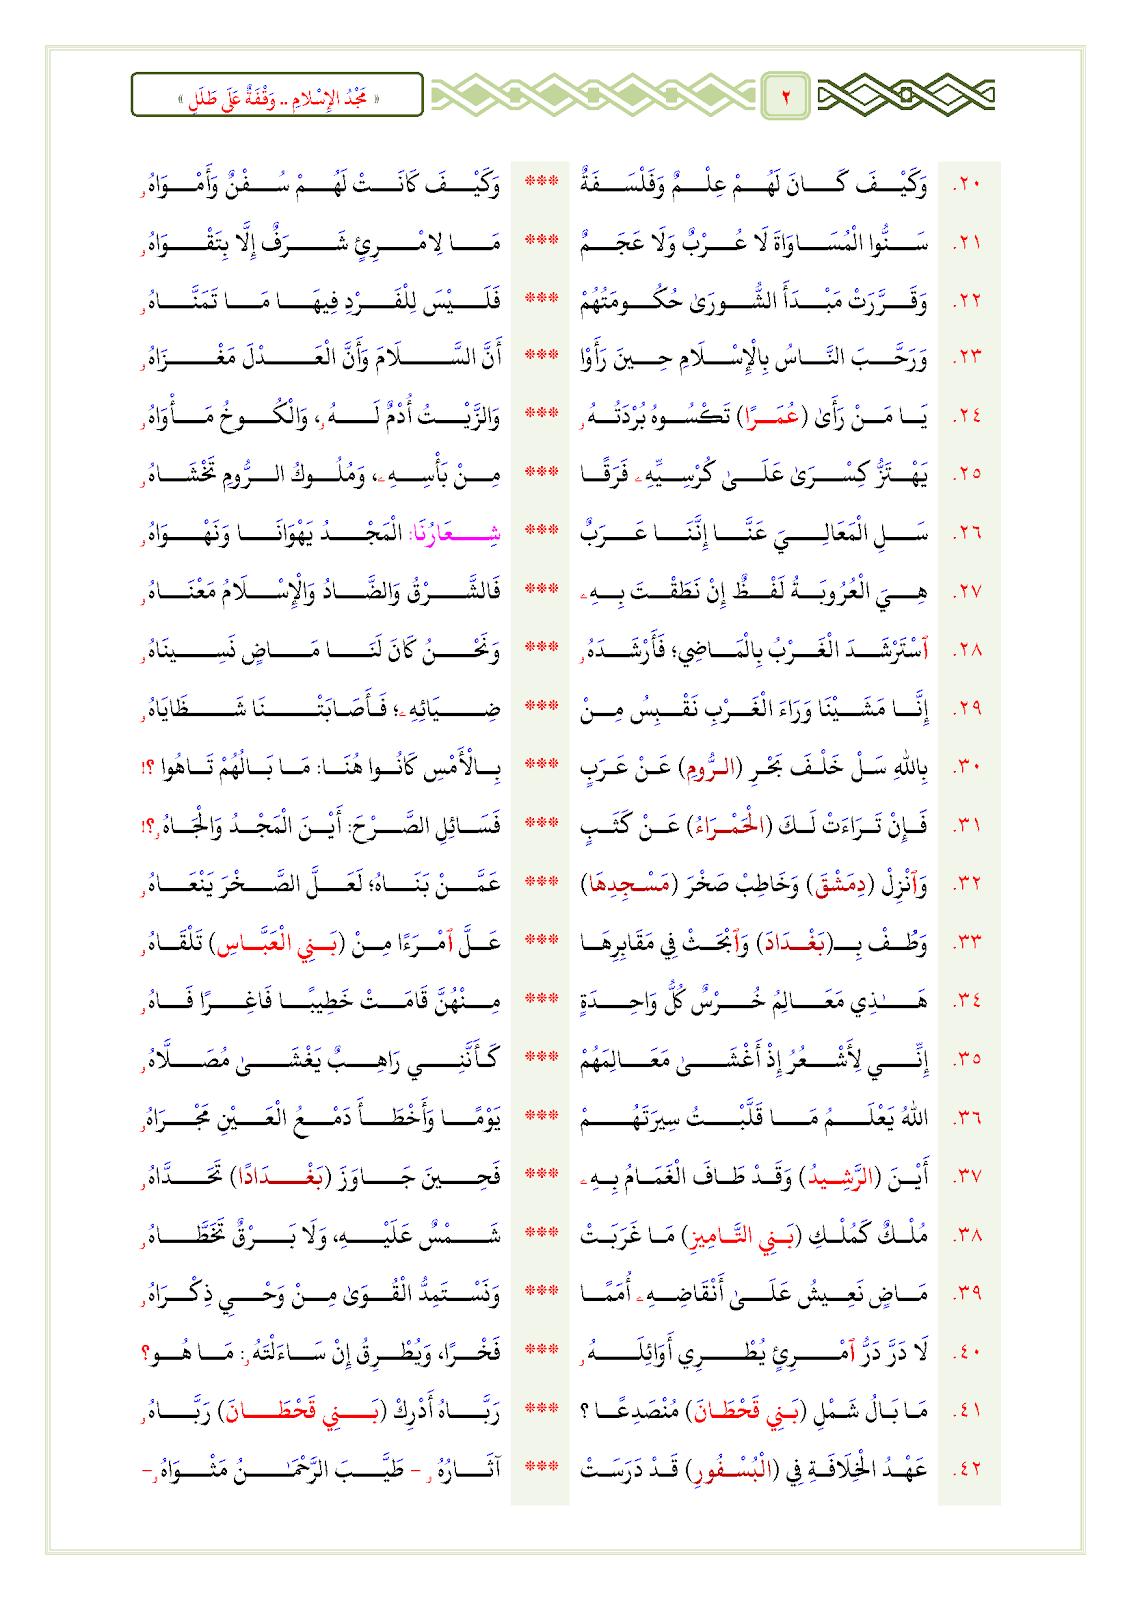 « مَجْدُ الإِسْلامِ .. وَقْفَةٌ عَلَى طَلَلِ » ٢
٢٠. وَكَيْفَ كَانَ لَهُمْ عِلْمٌ وَفَلْسَفَةٌ *** وَكَيْفَ كَانَتْ لَهُمْ سُفْنٌ وَأَمْوَاهُۥ
٢١. سَنُّوا الْمُسَاوَاةَ لَا عُرْبٌ وَلَا عَجَمٌ *** مَا لِامْرِئٍ شَرَفٌ إِلَّا بِتَقْوَاهُۥ
٢٢. وَقَرَّرَتْ مَبْدَأَ الشُّورَىٰ حُكُومَتُهُمْ *** فَلَيْسَ لِلْفَرْدِ فِيهَا مَا تَمَنَّاهُۥ
٢٣. وَرَحَّبَ النَّاسُ بِالْإِسْلَامِ حِينَ رَأَوْا *** أَنَّ السَّلَامَ وَأَنَّ الْعَدْلَ مَغْزَاهُۥ
٢٤. يَا مَنْ رَأَىٰ (عُمَرًا) تَكْسُوهُ بُرْدَتُهُۥ *** وَالزَّيْتُ أُدْمٌ لَهُۥ، وَالْكُوخُ مَأْوَاهُۥ
٢٥. يَهْتَزُّ كِسْرَىٰ عَلَىٰ كُرْسِيِّهِۦ فَرَقًا *** مِنْ بَأْسِهِۦ، وَمُلُوكُ الرُّومِ تَخْشَاهُۥ
٢٦. سَلِ الْمَعَالِيَ عَنَّا إِنَّنَا عَرَبٌ *** شِعَارُنَا: الْمَجْدُ يَهْوَانَا وَنَهْوَاهُۥ
٢٧. هِيَ الْعُرُوبَةُ لَفْظٌ إِنْ نَطَقْتَ بِهِۦ *** فَالشَّرْقُ وَالضَّادُ وَالْإِسْلَامُ مَعْنَاهُۥ
٢٨. ٱسْتَرْشَدَ الْغَرْبُ بِالْمَاضِي؛ فَأَرْشَدَهُۥ *** وَنَحْنُ كَانَ لَنَا مَاضٍ نَسِينَاهُۥ
٢٩. إِنَّا مَشَيْنَا وَرَاءَ الْغَرْبِ نَقْبِسُ مِنْ *** ضِيَائِهِۦ؛ فَأَصَابَتْنَا شَظَايَاهُۥ
٣٠. بِاللهِ سَلْ خَلْفَ بَحْرِ (الرُّومِ) عَنْ عَرَبٍ *** بِالْأَمْسِ كَانُوا هُنَا: مَا بَالُهُمْ تَاهُوا ؟!
٣١. فَإِنْ تَرَاءَتْ لَكَ (الْحَمْرَاءُ) عَنْ كَثَبٍ *** فَسَائِلِ الصَّرْحَ: أَيْنَ الْمَجْدُ وَالْجَاهُۥ ؟!
٣٢. وَٱنْزِلْ (دِمَشْقَ) وَخَاطِبْ صَخْرَ (مَسْجِدِهَا) *** عَمَّنْ بَنَاهُ؛ لَعَلَّ الصَّخْرَ يَنْعَاهُۥ
٣٣. وَطُفْ بِـ(بَغْدَادَ) وَٱبْحَثْ فِي مَقَابِرِهَا *** عَلَّ ٱمْرَءًا مِنْ (بَنِي الْعَبَّاسِ) تَلْقَاهُۥ
٣٤. هَٰذِي مَعَالِمُ خُرْسٌ كُلُّ وَاحِدَةٍ *** مِنْهُنَّ قَامَتْ خَطِيبًا فَاغِرًا فَاهُۥ
٣٥. إِنِّي لِأَشْعُرُ إِذْ أَغْشَىٰ مَعَالِمَهُمْ *** كَأَنَّنِي رَاهِبٌ يَغْشَىٰ مُصَلَّاهُۥ
٣٦. اللهُ يَعْلَمُ مَا قَلَّبْتُ سِيرَتَهُمْ *** يَوْمًا وَأَخْطَأَ دَمْعُ الْعَيْنِ مَجْرَاهُۥ
٣٧. أَيْنَ (الرَّشِيدُ) وَقَدْ طَافَ الْغَمَامُ بِهِۦ *** فَحِينَ جَاوَزَ (بَغْدَادًا) تَحَدَّاهُۥ
٣٨. مُلْكٌ كَمُلْكِ (بَنِي التَّامِيزِ) مَا غَرَبَتْ *** شَمْسٌ عَلَيْهِ، وَلَا بَرْقٌ تَخَطَّاهُۥ
٣٩. مَاضٍ نَعِيشُ عَلَىٰ أَنْقَاضِهِۦ أُمَمًا *** وَنَسْتَمِدُّ الْقُوَىٰ مِنْ وَحْيِ ذِكْرَاهُۥ
٤٠. لَا دَرَّ دَرُّ ٱمْرِئٍ يُطْرِي أَوَائِلَهُۥ *** فَخْرًا، وَيُطْرِقُ إِنْ سَاءَلْتَهُۥ: مَا هُو؟
٤١. مَا بَالُ شَمْلِ (بَنِي قَحْطَانَ) مُنْصَدِعًا ؟ *** رَبَّاهُ أَدْرِكْ (بَنِي قَحْطَانَ) رَبَّاهُۥ
٤٢. عَهْدُ الْخِلَافَةِ فِي (الْبُسْفُورِ) قَدْ دَرَسَتْ *** آثَارُهُۥ - طَيَّبَ الرَّحْمَٰنُ مَثْوَاهُۥ-